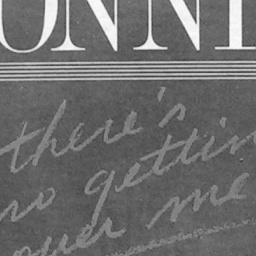 ONNI
there's
no getting
over me